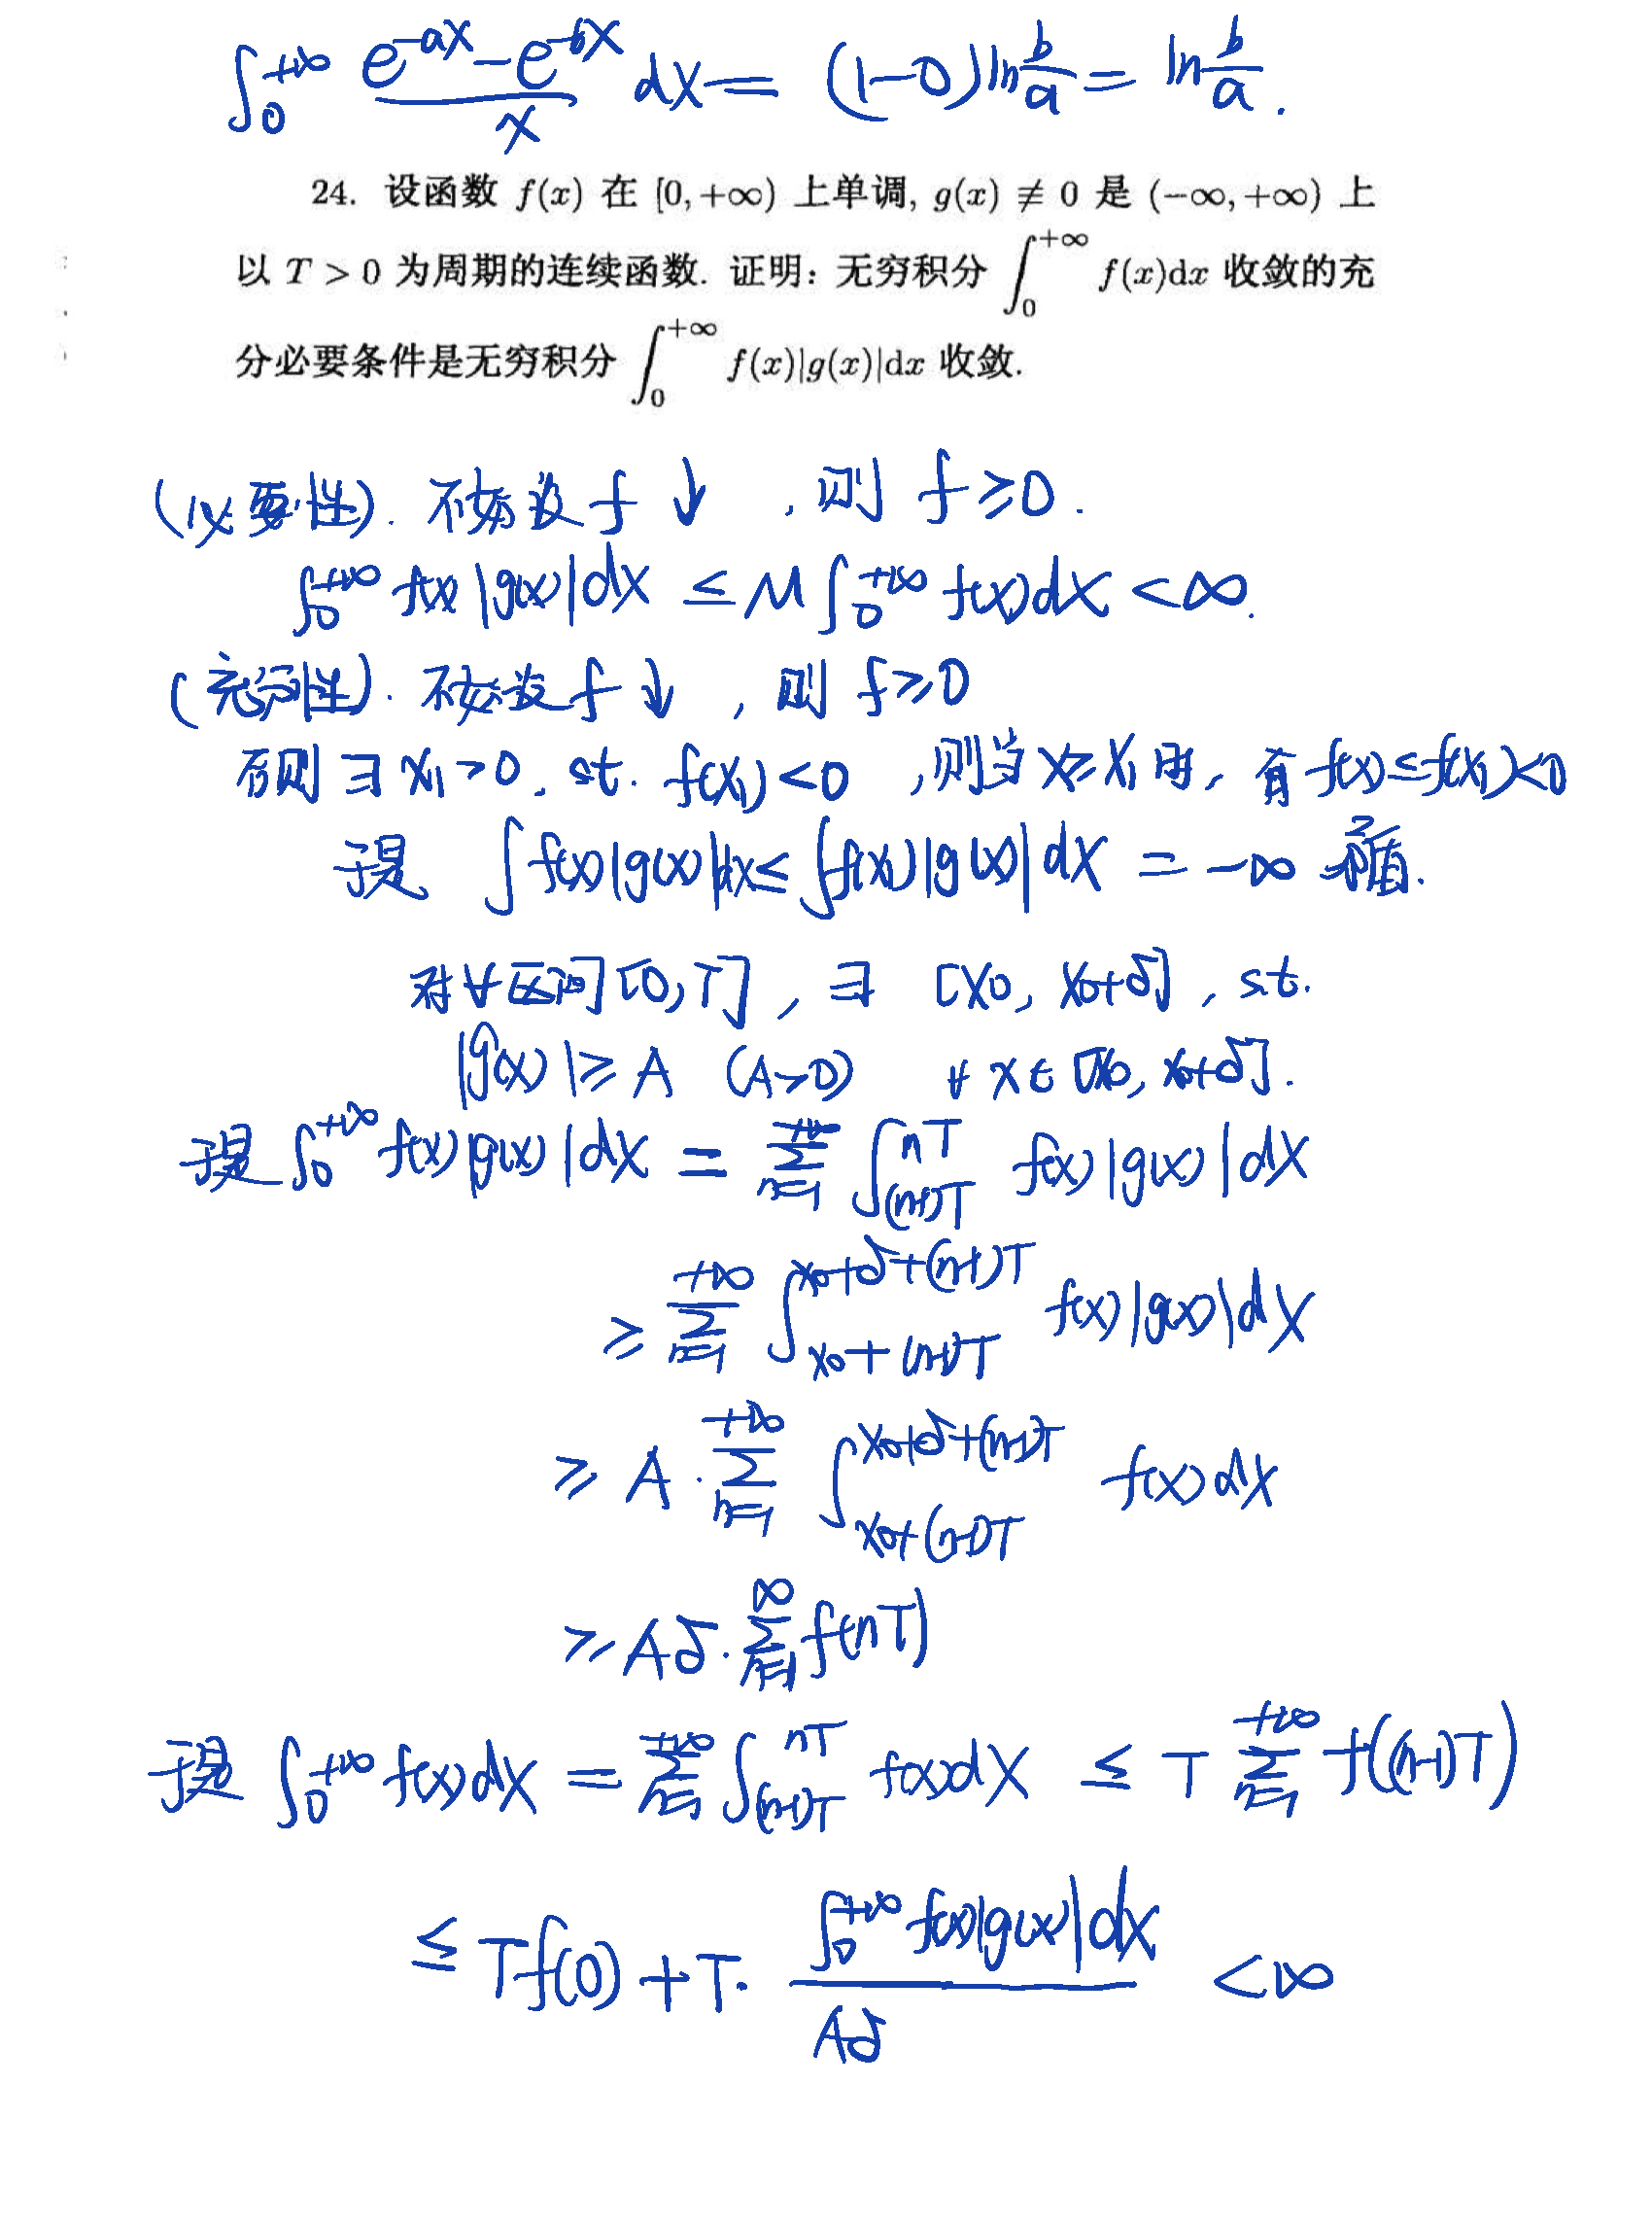 ∫₀^{+∞} (e^{-ax} - e^{-bx})/x dx = (1-0) ln b/a = ln b/a .
24. 设函数 f(x) 在 [0, +∞) 上单调, g(x) ≢ 0 是 (-∞, +∞) 上
以 T > 0 为周期的连续函数. 证明: 无穷积分 ∫₀^{+∞} f(x)dx 收敛的充
分必要条件是无穷积分 ∫₀^{+∞} f(x)|g(x)|dx 收敛.
(必要性). 不妨设 f ↓ , 则 f ≥ 0 .
∫₀^{+∞} f(x) |g(x)| dx ≤ M ∫₀^{+∞} f(x) dx < ∞.
(充分性). 不妨设 f ↓ , 则 f ≥ 0
否则 ∃ x₁ > 0, st. f(x₁) < 0 , 则当 x ≥ x₁ 时, 有 f(x) ≤ f(x₁) < 0
于是 ∫ f(x) |g(x)| dx ≤ ∫ f(x₁) |g(x)| dx = -∞ 矛盾.
对 ∀ 区间 [0, T] , ∃ [x₀, x₀+δ] , s.t.
|g(x)| ≥ A (A>0) ∀ x ∈ [x₀, x₀+δ].
于是 ∫₀^{+∞} f(x) |g(x)| dx = Σ_{n=1}^{+∞} ∫_{(n-1)T}^{nT} f(x) |g(x)| dx
≥ Σ_{n=1}^{+∞} ∫_{x₀+(n-1)T}^{x₀+δ+(n-1)T} f(x) |g(x)| dx
≥ A · Σ_{n=1}^{+∞} ∫_{x₀+(n-1)T}^{x₀+δ+(n-1)T} f(x) dx
≥ Aδ · Σ_{n=1}^{∞} f(nT)
于是 ∫₀^{+∞} f(x) dx = Σ_{n=1}^{+∞} ∫_{(n-1)T}^{nT} f(x) dx ≤ T Σ_{n=1}^{+∞} f((n-1)T)
≤ Tf(0) + T · (∫₀^{+∞} f(x)|g(x)| dx)/(Aδ) < ∞